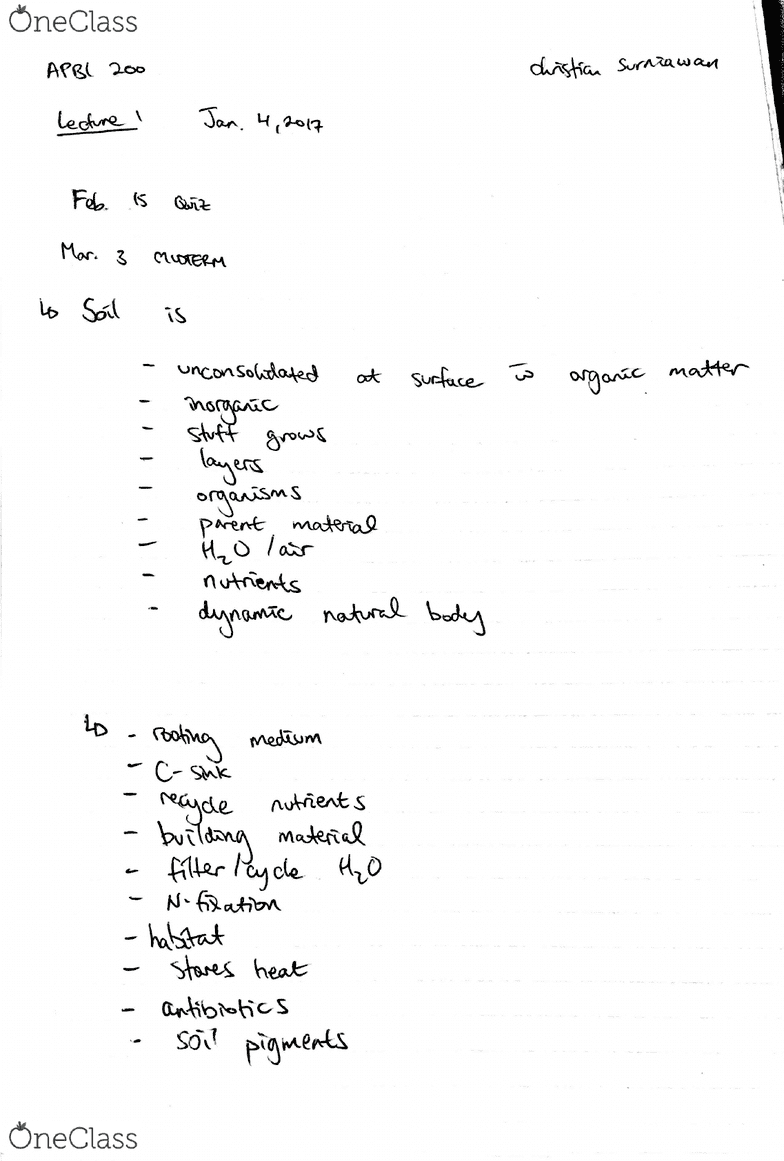 OneClass
APBL 200 Christian Surniawan
Lecture 1 Jan. 4, 2017
Feb. 15 Quiz
Mar. 3 MIDTERM
↳ Soil is
- unconsolidated at surface w organic matter
- inorganic
- stuff grows
- layers
- organisms
- parent material
- H₂O / air
- nutrients
- dynamic natural body
↳ - rooting medium
- C-sink
- recycle nutrients
- building material
- filter/cycle H₂O
- N-fixation
- habitat
- stores heat
- antibiotics
- soil pigments
OneClass